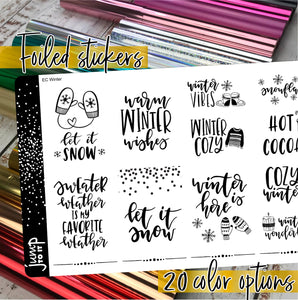 Foiled stickers
EC Winter
let it
SNOW
warm
WINTER
wishes
winter
VIBES
WINTER
COZY
snowfla
HOT
COCOA
SWEATER
weather
IS MY
FAVORITE
weather
let it
snow
winter
is
here
COZY
winter
winter
wonder
20 color options